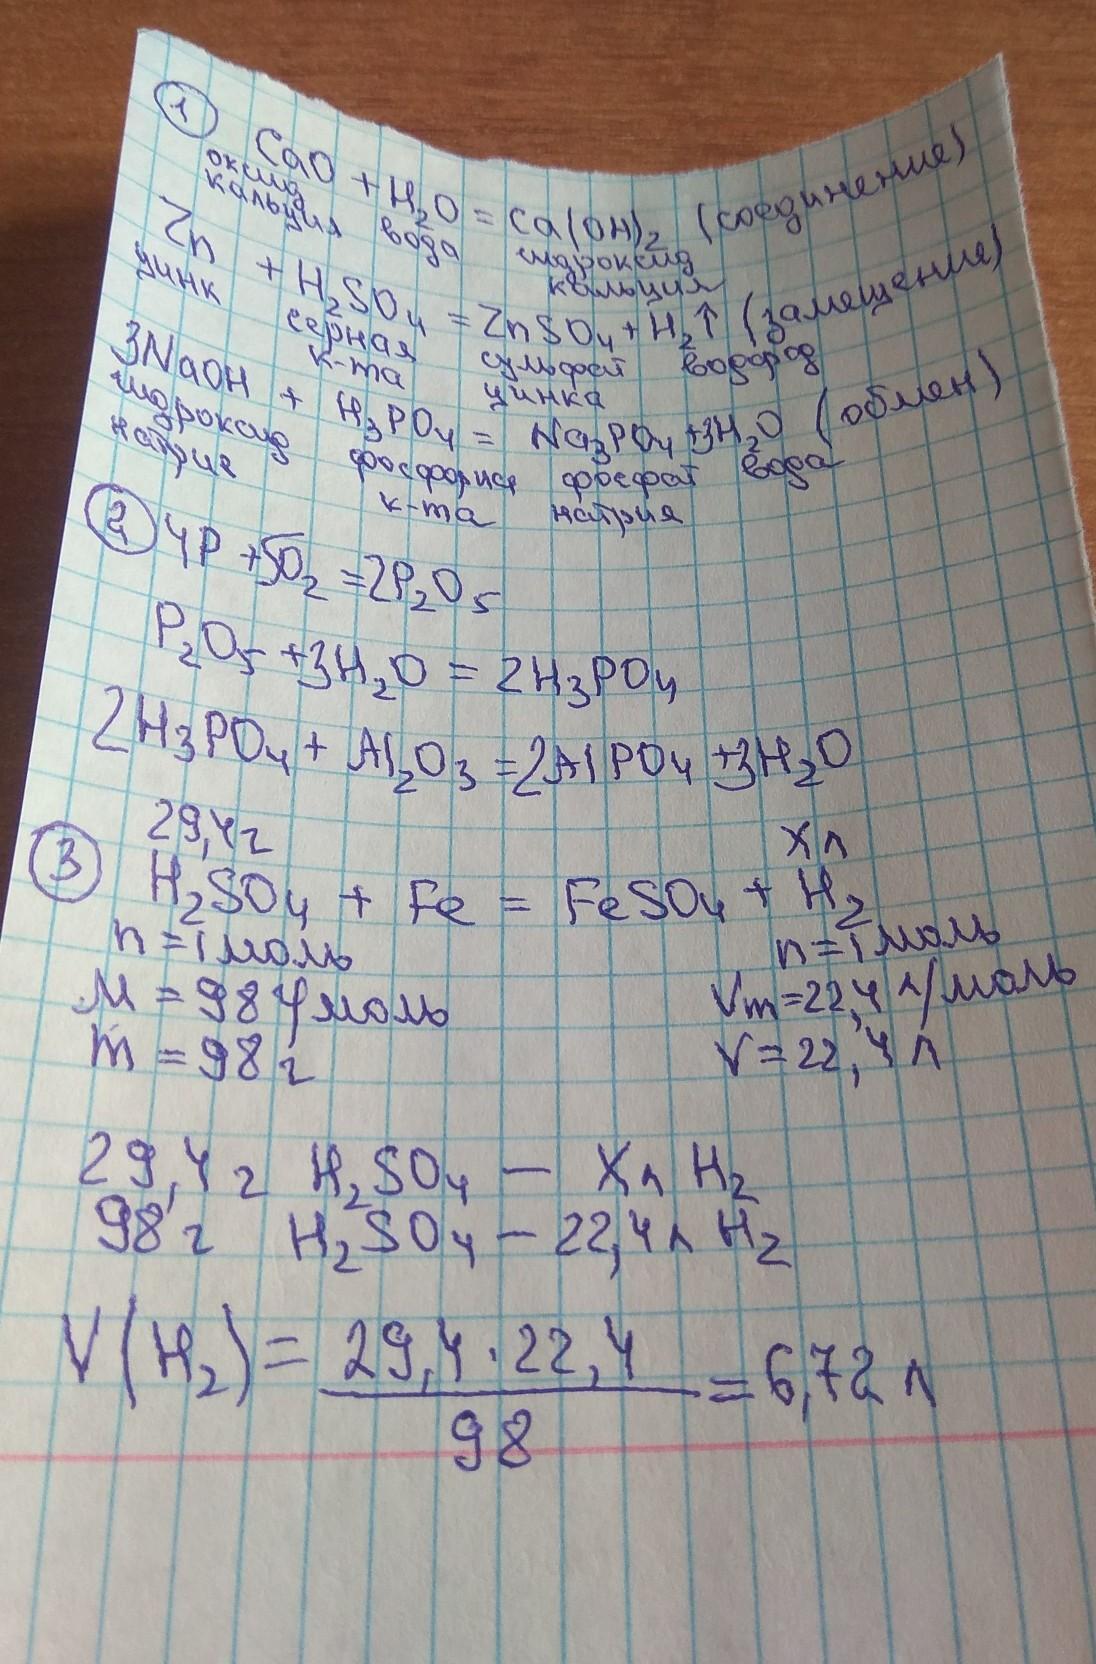 1
CaO + H₂O = Ca(OH)₂ (соединение)
оксид кальция вода гидроксид кальция
Zn + H₂SO₄ = ZnSO₄ + H₂↑ (замещение)
цинк серная к-та сульфат цинка водород
3NaOH + H₃PO₄ = Na₃PO₄ + 3H₂O (обмен)
гидроксид натрия фосфорная к-та фосфат натрия вода
2 4P + 5O₂ = 2P₂O₅
P₂O₅ + 3H₂O = 2H₃PO₄
2H₃PO₄ + Al₂O₃ = 2AlPO₄ + 3H₂O
29,4 г X л
3 H₂SO₄ + Fe = FeSO₄ + H₂
n = 1 моль n = 1 моль
M = 98 г/моль Vm = 22,4 л/моль
m = 98 г V = 22,4 л
29,4 г H₂SO₄ – X л H₂
98 г H₂SO₄ – 22,4 л H₂
V(H₂) = 29,4 · 22,4 / 98 = 6,72 л